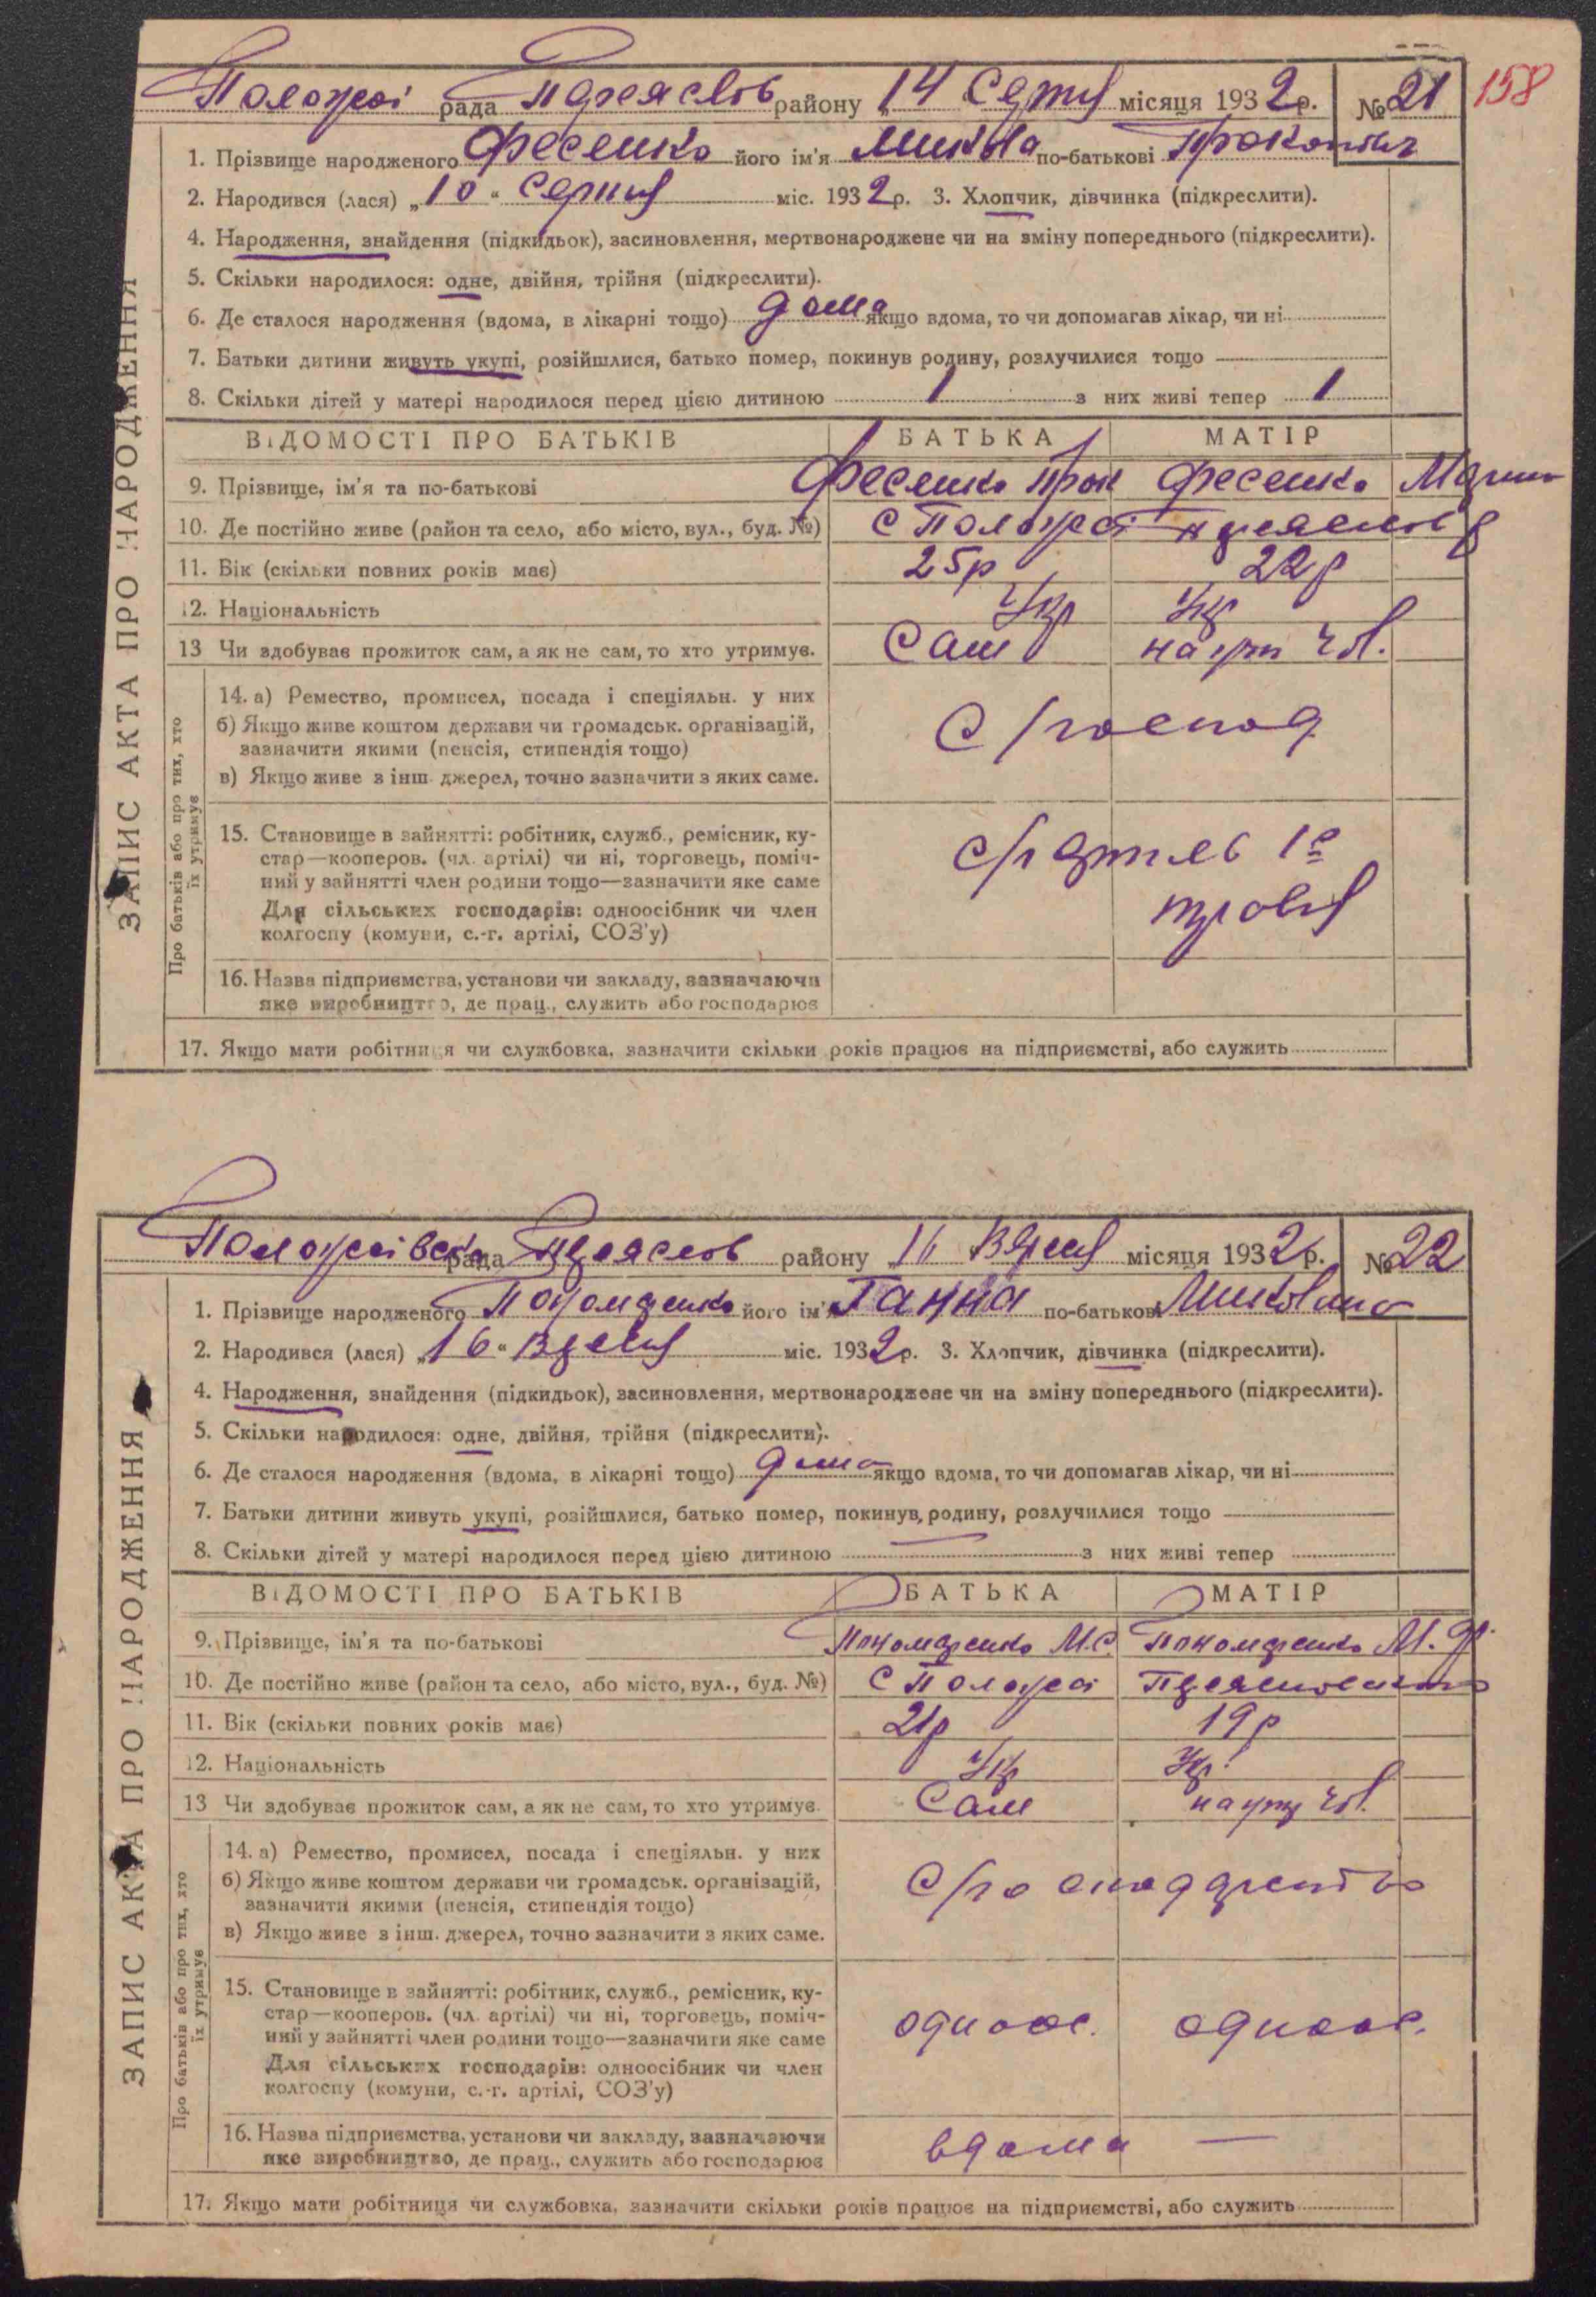 Положаї рада Переяслов району „14 Серпня місяця 1932р. № 21 158
1. Прізвище народженого Фесенко його ім'я Микола по-батькові Прокопович
2. Народився (лася) „10“ Серпня міс. 1932р. 3. Хлопчик, дівчинка (підкреслити).
4. Народження, знайдення (підкидьок), засиновлення, мертвонароджене чи на зміну попереднього (підкреслити).
5. Скільки народилося: одне, двійня, трійня (підкреслити).
6. Де сталося народження (вдома, в лікарні тощо) дома якщо вдома, то чи допомагав лікар, чи ні
7. Батьки дитини живуть укупі, розійшлися, батько помер, покинув родину, розлучилися тощо
8. Скільки дітей у матері народилося перед цією дитиною 1 з них живі тепер 1
ЗАПИС АКТА ПРО НАРОДЖЕННЯ
ВІДОМОСТІ ПРО БАТЬКІВ БАТЬКА МАТІР
9. Прізвище, ім'я та по-батькові Фесенко Прок Фесенко
10. Де постійно живе (район та село, або місто, вул., буд. №) с Положаї Переяслов р
11. Вік (скільки повних років має) 25р 22р
12. Національність Укр Укр
13 Чи здобуває прожиток сам, а як не сам, то хто утримує. Сам на утр чол.
Про батьків або про тих, хто їх утримує
14. а) Ремество, промисел, посада і спеціяльн. у них
б) Якщо живе коштом держави чи громадськ. організацій,
зазначити якими (пенсія, стипендія тощо)
в) Якщо живе з інш. джерел, точно зазначити з яких саме.
с/господ
15. Становище в зайнятті: робітник, служб., ремісник, ку-
стар—кооперов. (чл. артілі) чи ні, торговець, поміч-
ний у зайнятті член родини тощо—зазначити яке саме
Для сільських господарів: одноосібник чи член
колгоспу (комуни, с.-г. артілі, СОЗ'у)
с/г артиль 1е
травня
16. Назва підприємства, установи чи закладу, зазначаючи
яке виробництво, де прац., служить або господарює
17. Якщо мати робітниця чи службовка, зазначити скільки років працює на підприємстві, або служить
Положаївська рада Переяслов району „16 Вересня місяця 1932р. № 22
1. Прізвище народженого Пономаренко його ім'я Ганна по-батькові Миколаївна
2. Народився (лася) „16“ Вересня міс. 1932р. 3. Хлопчик, дівчинка (підкреслити).
4. Народження, знайдення (підкидьок), засиновлення, мертвонароджене чи на зміну попереднього (підкреслити).
5. Скільки народилося: одне, двійня, трійня (підкреслити).
6. Де сталося народження (вдома, в лікарні тощо) дома якщо вдома, то чи допомагав лікар, чи ні
7. Батьки дитини живуть укупі, розійшлися, батько помер, покинув родину, розлучилися тощо
8. Скільки дітей у матері народилося перед цією дитиною — з них живі тепер
ЗАПИС АКТА ПРО НАРОДЖЕННЯ
ВІДОМОСТІ ПРО БАТЬКІВ БАТЬКА МАТІР
9. Прізвище, ім'я та по-батькові Пономаренко М.С. Пономаренко М.
10. Де постійно живе (район та село, або місто, вул., буд. №) с Положаї
11. Вік (скільки повних років має) 21р 19р
12. Національність Укр Укр.
13 Чи здобуває прожиток сам, а як не сам, то хто утримує. Сам на утр чол.
Про батьків або про тих, хто їх утримує
14. а) Ремество, промисел, посада і спеціяльн. у них
б) Якщо живе коштом держави чи громадськ. організацій,
зазначити якими (пенсія, стипендія тощо)
в) Якщо живе з інш. джерел, точно зазначити з яких саме.
15. Становище в зайнятті: робітник, служб., ремісник, ку-
стар—кооперов. (чл. артілі) чи ні, торговець, поміч-
ний у зайнятті член родини тощо—зазначити яке саме
Для сільських господарів: одноосібник чи член
колгоспу (комуни, с.-г. артілі, СОЗ'у)
одноос. одноос.
16. Назва підприємства, установи чи закладу, зазначаючи
яке виробництво, де прац., служить або господарює
вдома —
17. Якщо мати робітниця чи службовка, зазначити скільки років працює на підприємстві, або служить